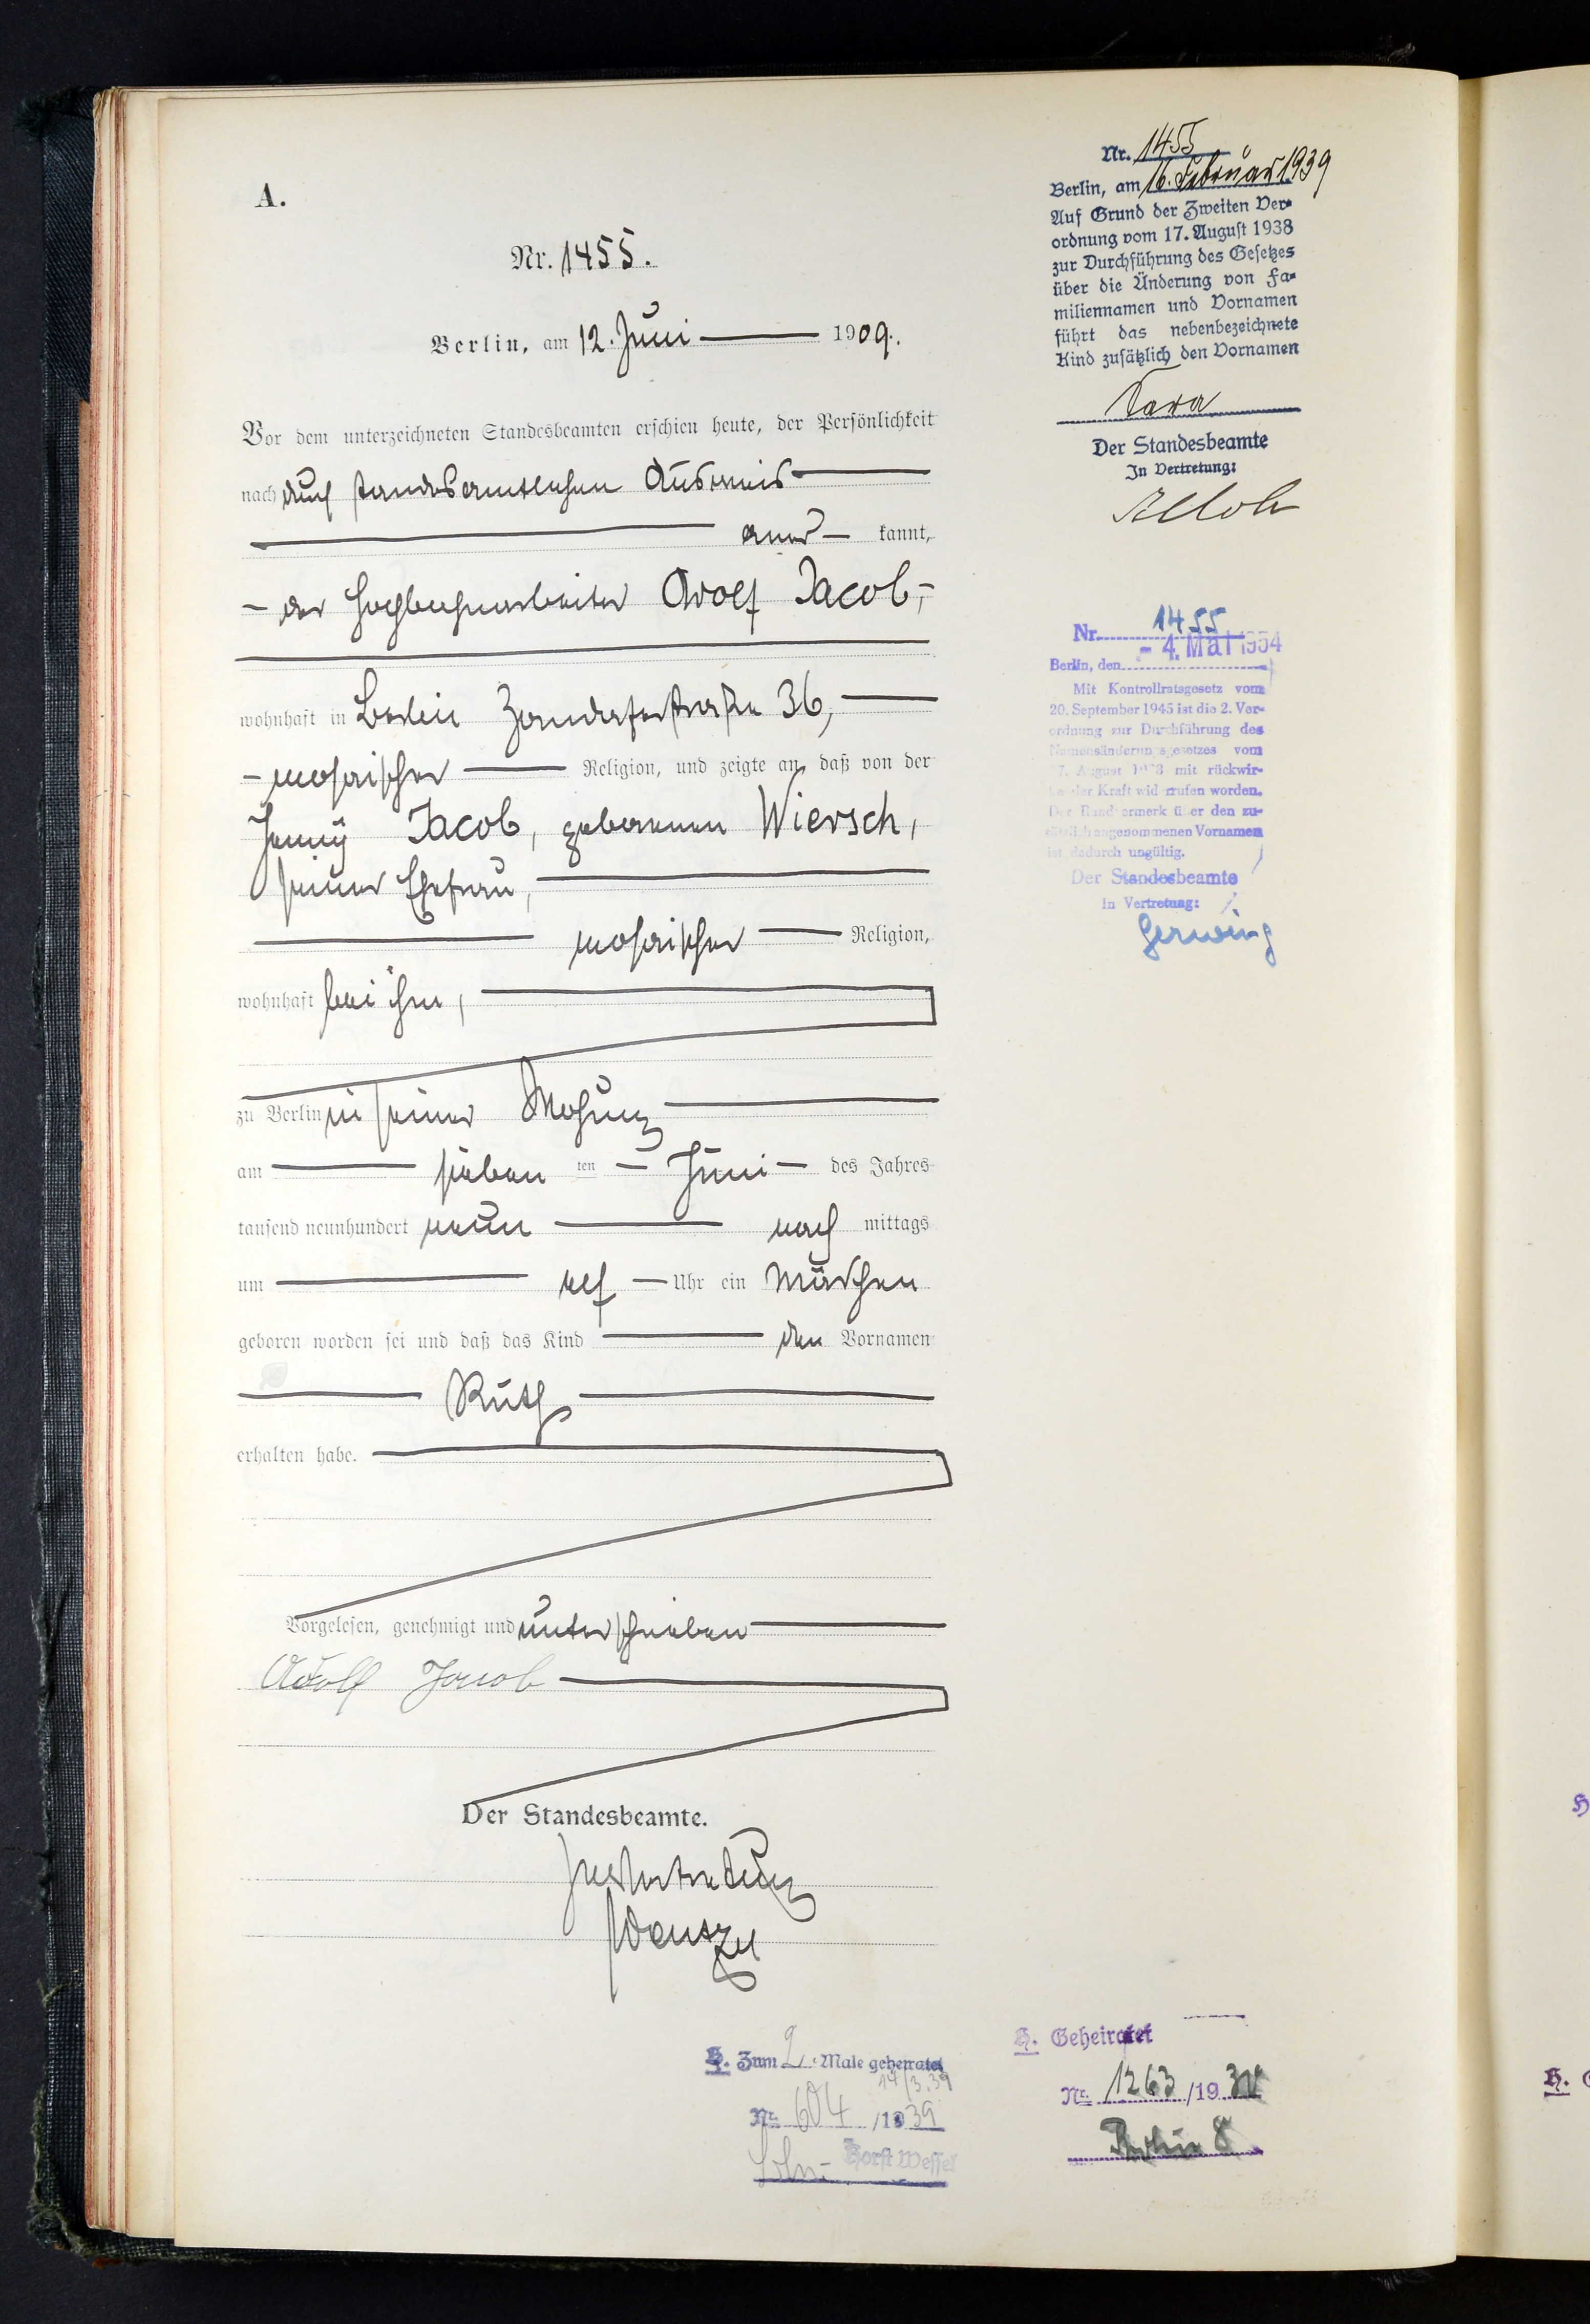 A.
Nr. 1455.
Berlin, am 12. Juni 1909.
Vor dem unterzeichneten Standesbeamten erschien heute, der Persönlichkeit
nach durch standesamtlichen Ausweis
aner kannt,
der Hochbahnarbeiter Adolf Jacob,
wohnhaft in Berlin Zorndorferstraße 36,
mosaischer Religion, und zeigte an, daß von der
Jenny Jacob, geborenen Wiersch,
seiner Ehefrau,
mosaischer Religion,
wohnhaft bei ihm,
zu Berlin in seiner Wohnung
am sieben ten Juni des Jahres
tausend neunhundert neun nach mittags
um elf Uhr ein Mädchen
geboren worden sei und daß das Kind den Vornamen
Ruth
erhalten habe.
Vorgelesen, genehmigt und unterschrieben
Adolf Jacob
Der Standesbeamte.
In Vertretung
Nr. 1455
Berlin, am 16. Februar 1939
Auf Grund der Zweiten Ver-
ordnung vom 17. August 1938
zur Durchführung des Gesetzes
über die Änderung von Fa-
miliennamen und Vornamen
führt das nebenbezeichnete
Kind zusätzlich den Vornamen
Sara
Der Standesbeamte
In Vertretung:
Nr. 1455
Berlin, den - 4. Mai 1954
Mit Kontrollratsgesetz vom
20. September 1945 ist die 2. Ver-
ordnung zur Durchführung des
Namensänderungsgesetzes vom
17. August 1938 mit rückwir-
kender Kraft widerrufen worden.
Der Randvermerk über den zu-
sätzlich angenommenen Vornamen
ist dadurch ungültig.
Der Standesbeamte
In Vertretung:
Gerwing
H. Zum 2. Male geheiratet
14/3.39
Nr. 604 /1939
Bln.- Horst Wessel
H. Geheiratet
Nr. 1263 /19
Berlin 8
H.